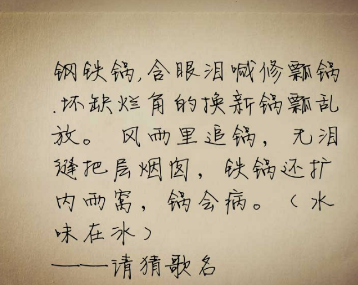 钢铁锅,含眼泪喊修瓢锅
.坏缺烂角的换新锅瓢乱
放。 风雨里追锅，无泪
缝把层烟囱，铁锅还扩
内雨窝，锅会病。（水
味在冰）
——请猜歌名